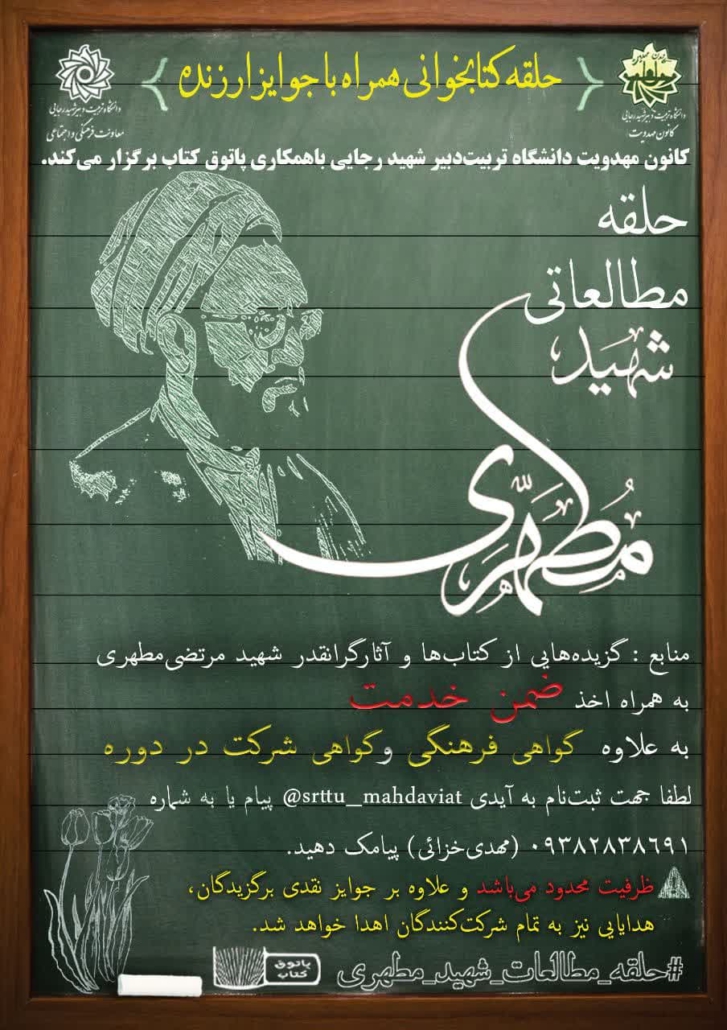 حلقه کتابخوانی همراه با جوایز ارزنده
دانشگاه تربیت دبیر شهید رجایی
کانون مهدویت
دانشگاه تربیت دبیر شهید رجایی
معاونت فرهنگی و اجتماعی
کانون مهدویت دانشگاه تربیت‌دبیر شهید رجایی باهمکاری پاتوق کتاب برگزار می‌کند.
حلقه
مطالعاتی
شهید
مطهری
منابع : گزیده‌هایی از کتاب‌ها و آثارگرانقدر شهید مرتضی‌مطهری
به همراه اخذ ضمن خدمت
به علاوه گواهی فرهنگی وگواهی شرکت در دوره
لطفا جهت ثبت‌نام به آیدی @srttu_mahdaviat پیام یا به شماره
۰۹۳۸۲۸۳۸۶۹۱ (مهدی‌خزائی) پیامک دهید.
ظرفیت محدود می‌باشد و علاوه بر جوایز نقدی برگزیدگان،
هدایایی نیز به تمام شرکت‌کنندگان اهدا خواهد شد.
#حلقه_مطالعات_شهید_مطهری
پاتوق
کتاب